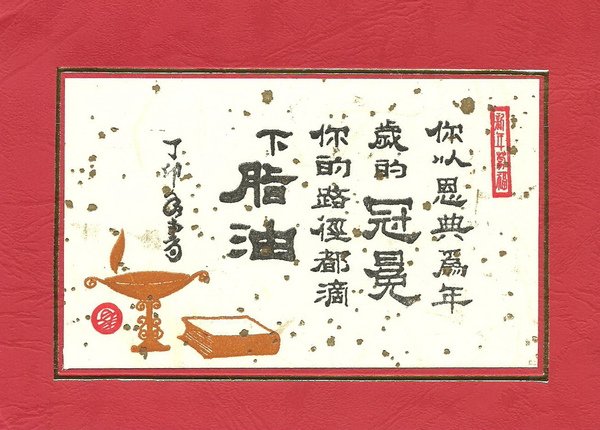 新年蒙福
你以恩典為年
歲的冠冕
你的路徑都滴
下脂油
丁卯